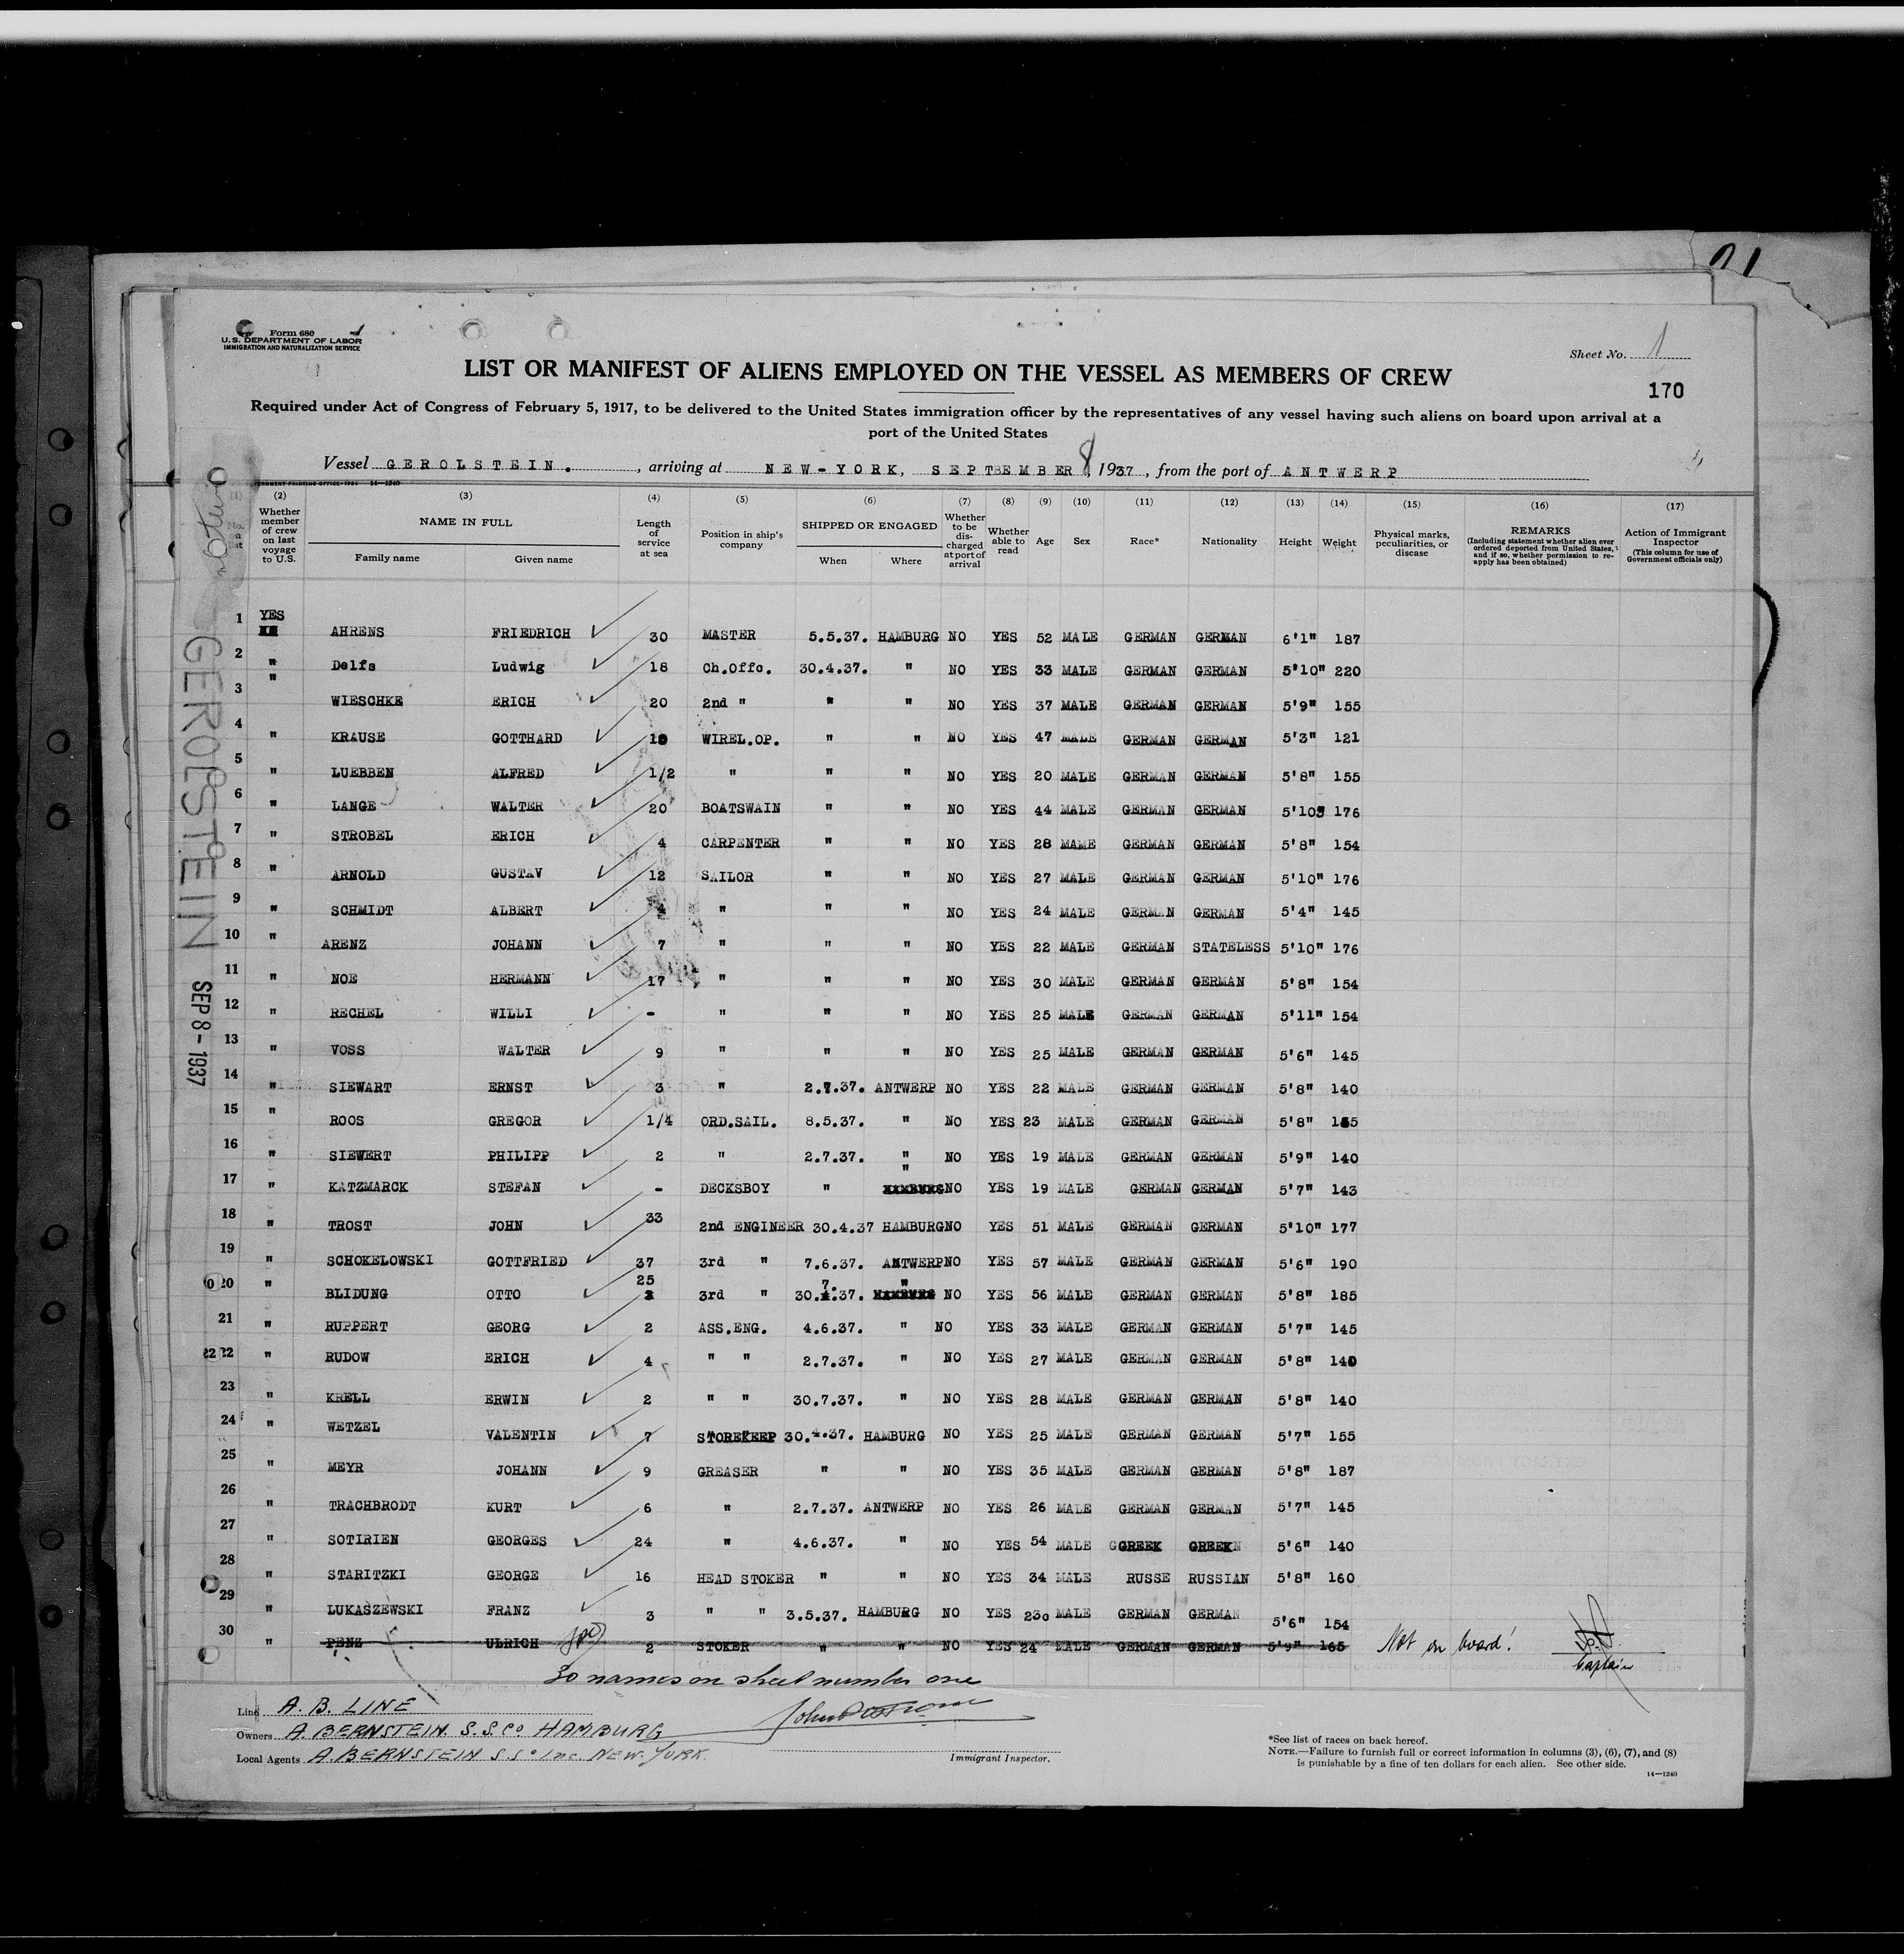 Form 680
U.S. DEPARTMENT OF LABOR
IMMIGRATION AND NATURALIZATION SERVICE
Sheet No. 1
LIST OR MANIFEST OF ALIENS EMPLOYED ON THE VESSEL AS MEMBERS OF CREW
170
Required under Act of Congress of February 5, 1917, to be delivered to the United States immigration officer by the representatives of any vessel having such aliens on board upon arrival at a
port of the United States
Vessel GEROLSTEIN. , arriving at NEW-YORK, SEPTBEMBER 8, 1937, from the port of ANTWERP
(2) (3) (4) (5) (6) (7) (8) (9) (10) (11) (12) (13) (14) (15) (16) (17)
Whether member of crew on last voyage to U.S.
NAME IN FULL
Family name Given name
Length of service at sea
Position in ship's company
SHIPPED OR ENGAGED
When Where
Whether to be discharged at port of arrival
Whether able to read
Age Sex Race* Nationality Height Weight
Physical marks, peculiarities, or disease
REMARKS
(Including statement whether alien ever ordered deported from United States, and if so, whether permission to reapply has been obtained)
Action of Immigrant Inspector
(This column for use of Government officials only)
1 YES AHRENS FRIEDRICH 30 MASTER 5.5.37. HAMBURG NO YES 52 MALE GERMAN GERMAN 6'1" 187
2 " Delfs Ludwig 18 Ch.Offc. 30.4.37. " NO YES 33 MALE GERMAN GERMAN 5'10" 220
3 " WIESCHKE ERICH 20 2nd " " " NO YES 37 MALE GERMAN GERMAN 5'9" 155
4 " KRAUSE GOTTHARD WIREL.OP. " " NO YES 47 MALE GERMAN GERMAN 5'3" 121
5 " LUEBBEN ALFRED 1/2 " " " NO YES 20 MALE GERMAN GERMAN 5'8" 155
6 " LANGE WALTER 20 BOATSWAIN " " NO YES 44 MALE GERMAN GERMAN 5'10 176
7 " STROBEL ERICH 4 CARPENTER " " NO YES 28 MAME GERMAN GERMAN 5'8" 154
8 " ARNOLD GUSTAV 12 SAILOR " " NO YES 27 MALE GERMAN GERMAN 5'10" 176
9 " SCHMIDT ALBERT 4 " " " NO YES 24 MALE GERMAN GERMAN 5'4" 145
10 " ARENZ JOHANN 7 " " " NO YES 22 MALE GERMAN STATELESS 5'10" 176
11 " NOE HERMANN 17 " " " NO YES 30 MALE GERMAN GERMAN 5'8" 154
12 " RECHEL WILLI - " " " NO YES 25 MALE GERMAN GERMAN 5'11" 154
13 " VOSS WALTER 9 " " " NO YES 25 MALE GERMAN GERMAN 5'6" 145
14 " SIEWART ERNST 3 " 2.7.37. ANTWERP NO YES 22 MALE GERMAN GERMAN 5'8" 140
15 " ROOS GREGOR 1/4 ORD.SAIL. 8.5.37. " NO YES 23 MALE GERMAN GERMAN 5'8"
16 " SIEWERT PHILIPP 2 " 2.7.37. " NO YES 19 MALE GERMAN GERMAN 5'9" 140
17 " KATZMARCK STEFAN - DECKSBOY " " HAMBURG NO YES 19 MALE GERMAN GERMAN 5'7" 143
18 " TROST JOHN 33 2nd ENGINEER 30.4.37 HAMBURG NO YES 51 MALE GERMAN GERMAN 5'10" 177
19 " SCHOKELOWSKI GOTTFRIED 37 3rd " 7.6.37. ANTWERP NO YES 57 MALE GERMAN GERMAN 5'6" 190
20 " BLIDUNG OTTO 25 3rd " 30.7.37. " HAMBURG NO YES 56 MALE GERMAN GERMAN 5'8" 185
21 " RUPPERT GEORG 2 ASS.ENG. 4.6.37. " NO YES 33 MALE GERMAN GERMAN 5'7" 145
22 " RUDOW ERICH 4 " " 2.7.37. " NO YES 27 MALE GERMAN GERMAN 5'8" 140
23 " KRELL ERWIN 2 " " 30.7.37. " NO YES 28 MALE GERMAN GERMAN 5'8" 140
24 " WETZEL VALENTIN 7 STOREKEEP 30.4.37. HAMBURG NO YES 25 MALE GERMAN GERMAN 5'7" 155
25 " MEYR JOHANN 9 GREASER " " NO YES 35 MALE GERMAN GERMAN 5'8" 187
26 " TRACHBRODT KURT 6 " 2.7.37. ANTWERP NO YES 26 MALE GERMAN GERMAN 5'7" 145
27 " SOTIRIEN GEORGES 24 " 4.6.37. " NO YES 54 MALE GREEK GREEK 5'6" 140
28 " STARITZKI GEORGE 16 HEAD STOKER " " NO YES 34 MALE RUSSE RUSSIAN 5'8" 160
29 " LUKASZEWSKI FRANZ 3 " " 3.5.37. HAMBURG NO YES 23 MALE GERMAN GERMAN 5'6" 154
30 " PENZ ULRICH 2 STOKER " " NO YES 24 MALE GERMAN GERMAN 5'9" 165 Not on board! Captain
30 names on sheet number one
Line A. B. LINE
Owners A. BERNSTEIN. S.S.Co HAMBURG
Local Agents A. BERNSTEIN S.S. Inc. NEW-YORK.
Immigrant Inspector.
*See list of races on back hereof.
NOTE.—Failure to furnish full or correct information in columns (3), (6), (7), and (8)
is punishable by a fine of ten dollars for each alien. See other side.
14—1240
GEROLSTEIN
SEP 8 - 1937